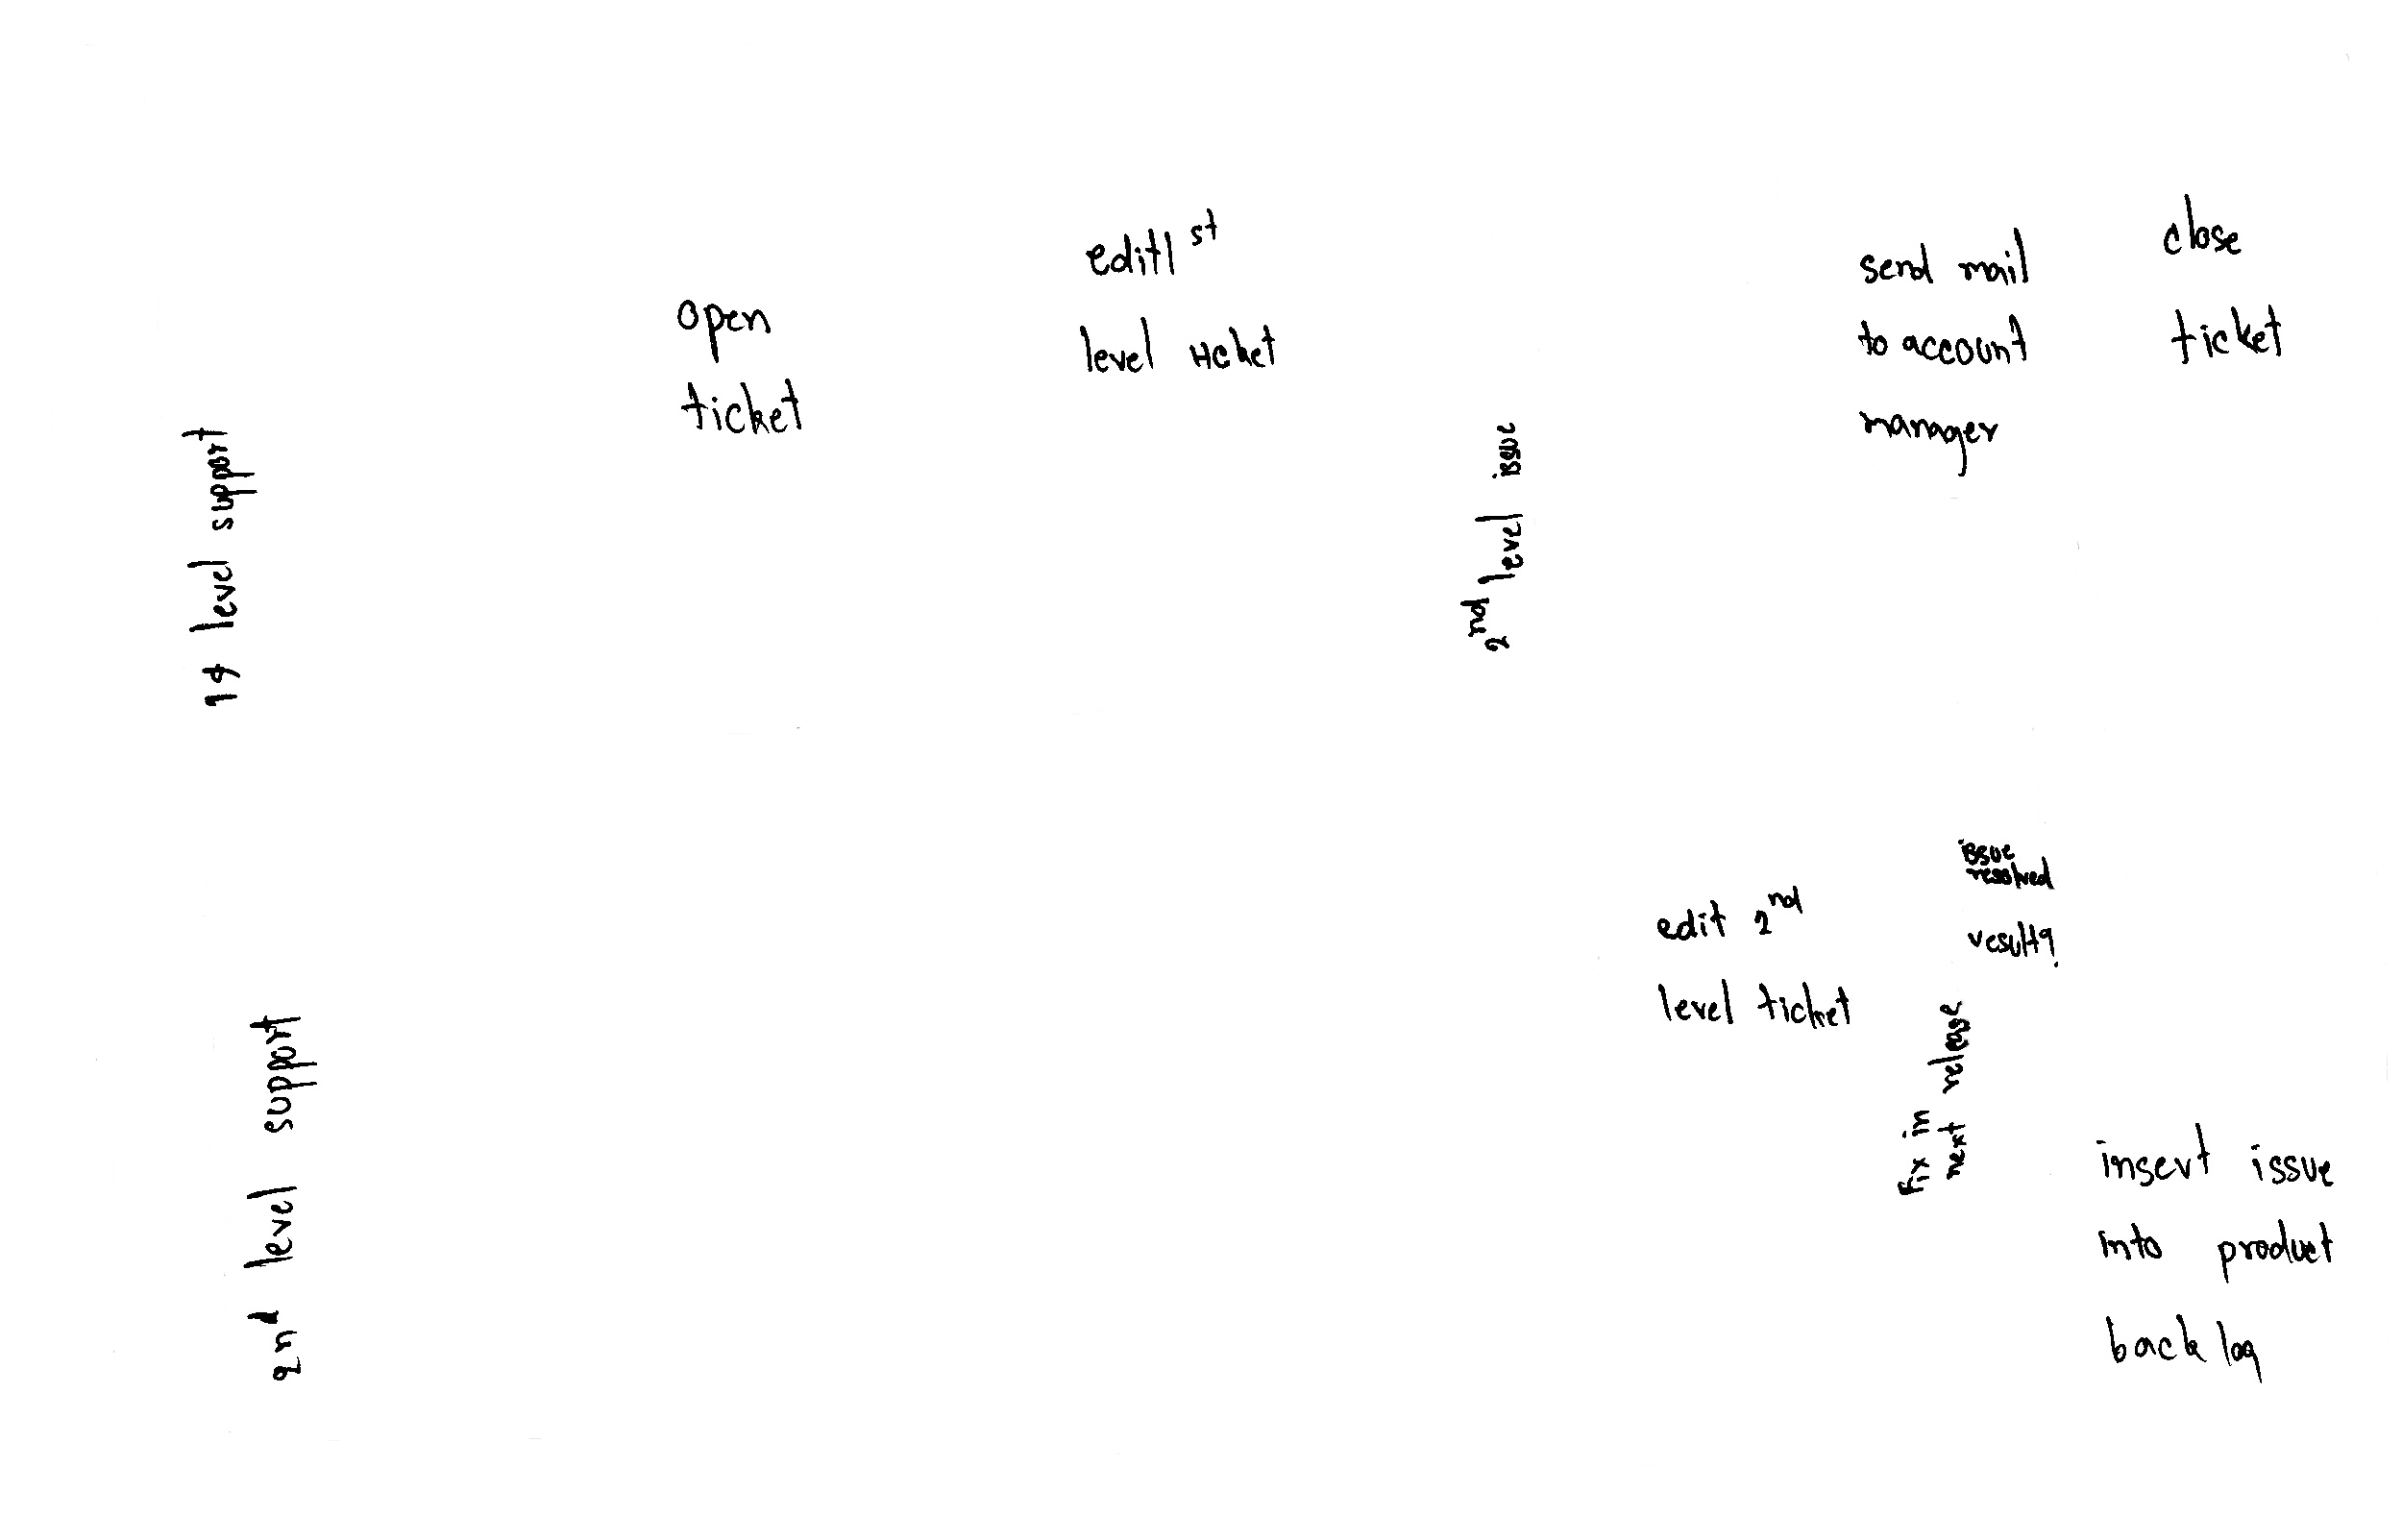 1st level support
open
ticket
edit 1st
level ticket
2nd level issue
send mail
to account
manager
close
ticket
2nd level support
edit 2nd
level ticket
issue
resolved
result?
fix in
next release
insert issue
into product
backlog